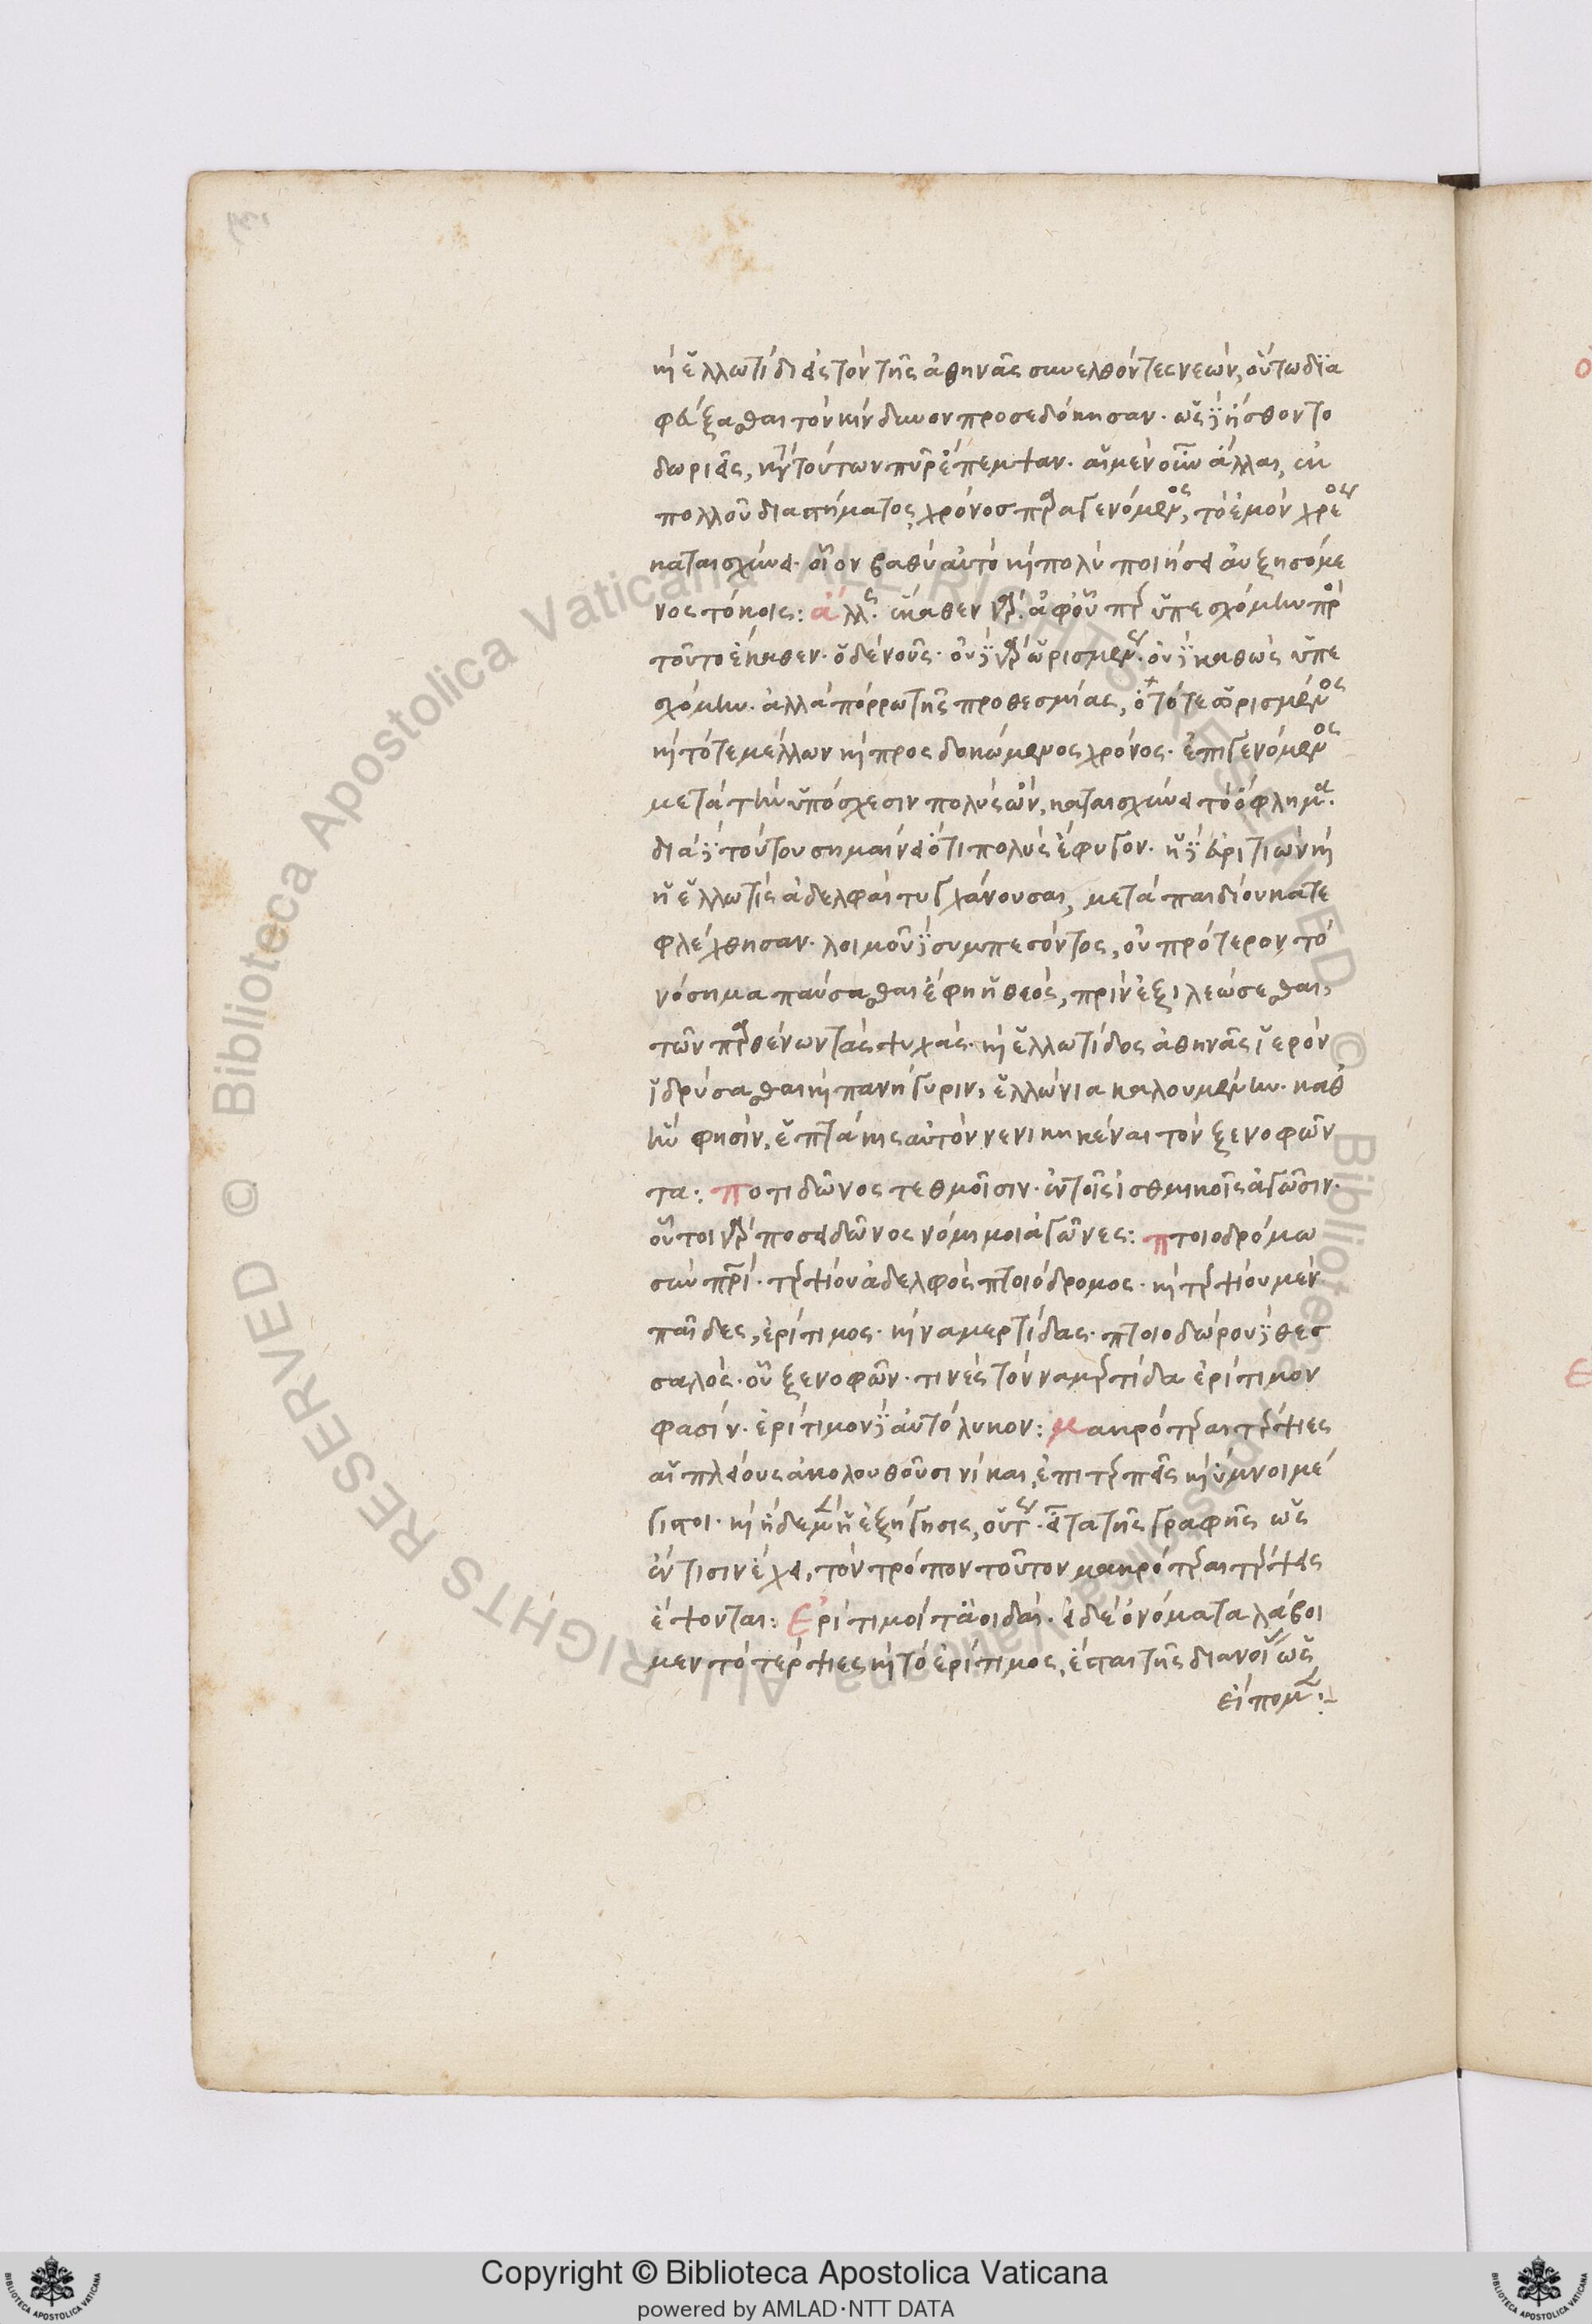 καὶ ἑλλωτίδι εἰς τὸν τῆς ἀθηνᾶς συνελθόντες νεών, οὕτω δια
φεύξασθαι τὸν κίνδυνον προσεδόκησαν. ὡς δὲ ἤσθοντο
δωριεῖς, κατὰ τούτων πῦρ ἔπεμψαν. αἱ μὲν οὖν ἄλλαι, ἐκ
πολλοῦ διαστήματος χρόνος παραγενόμενος, τὸ ἐμὸν χρέος
καταισχύνει. οἷον βαθὺ αὐτὸ καὶ πολὺ ποιήσει αὐξησόμε
νος τόκοις: ἄλλως. ἕκαθεν γάρ. ἀφ' οὗ περ ὑπεσχόμην παρὰ
τοῦτο ἕκαθεν. ὁ δὲ νοῦς. οὐ γὰρ ὡρισμένως. οὐ καθὼς ὑπε
σχόμην. ἀλλὰ πόρρω τῆς προθεσμίας, ὁ τότε ὡρισμένος
καὶ τότε μέλλων καὶ προσδοκώμενος χρόνος. ἐπιγενόμενος
μετὰ τὴν ὑπόσχεσιν πολὺς ὤν, καταισχύνει τὸ ὄφλημα.
διὰ δὲ τούτου σημαίνει ὅτι πολὺς ἔφυγον. ἡ δὲ εὐριτιὼν καὶ
ἡ ἑλλωτὶς ἀδελφαὶ τυγχάνουσαι, μετὰ παιδίου κατε
φλέχθησαν. λοιμοῦ δὲ συμπεσόντος, οὐ πρότερον τὸ
νόσημα παύσασθαι ἔφη ἡ θεός, πρὶν ἐξιλεώσεσθαι,
τῶν παρθένων τὰς ψυχάς. καὶ ἑλλωτίδος ἀθηνᾶς ἱερὸν
ἱδρύσασθαι καὶ πανήγυριν, ἑλλώνια καλουμένην. καθ'
ἣν φησίν, ἑπτάκις αὐτὸν νενικηκέναι τὸν ξενοφῶν
τα: ποτιδῶνος τεθμοῖσιν. ἐν τοῖς ἰσθμικοῖς ἀγῶσιν.
οὗτοι γὰρ ποσειδῶνος νόμιμοι ἀγῶνες: πτοιοδρόμω
σὺν πατρί. τερψίου ἀδελφὸς πτοιόδρομος. καὶ τερψίου μὲν
παῖδες, ἐρίτιμος. καὶ ναμερτίδας. πτοιοδώρου δὲ θεσ
σαλὸς. οὗ ξενοφῶν. τινὲς τὸν ναμερτίδα ἐρίτιμον
φασίν. ἐρίτιμον δὲ αὐτόλυκον: μακρότεραι τέρψιες
αἷ πλείους ἀκολουθοῦσι νίκαι, ἐπιτερπεῖς καὶ ὕμνοι μέ
γιστοι. καὶ ἡ δὲ μὲν ἡ ἐξήγησις, οὕτως. εἶτα τῆς γραφῆς ὡς
ἔν τισιν ἔχει, τὸν τρόπον τοῦτον μακρότεραι τέρψεις
ἕψονται: Ἐρίτιμοί τ' ἀοιδαί. εἰ δὲ ὀνόματα λάβοι
μεν τὸ τέρψιες καὶ τὸ ἐρίτιμος, ἔσται τῆς διανοίας ὡς
εἴπομεν:
Copyright © Biblioteca Apostolica Vaticana
powered by AMLAD·NTT DATA